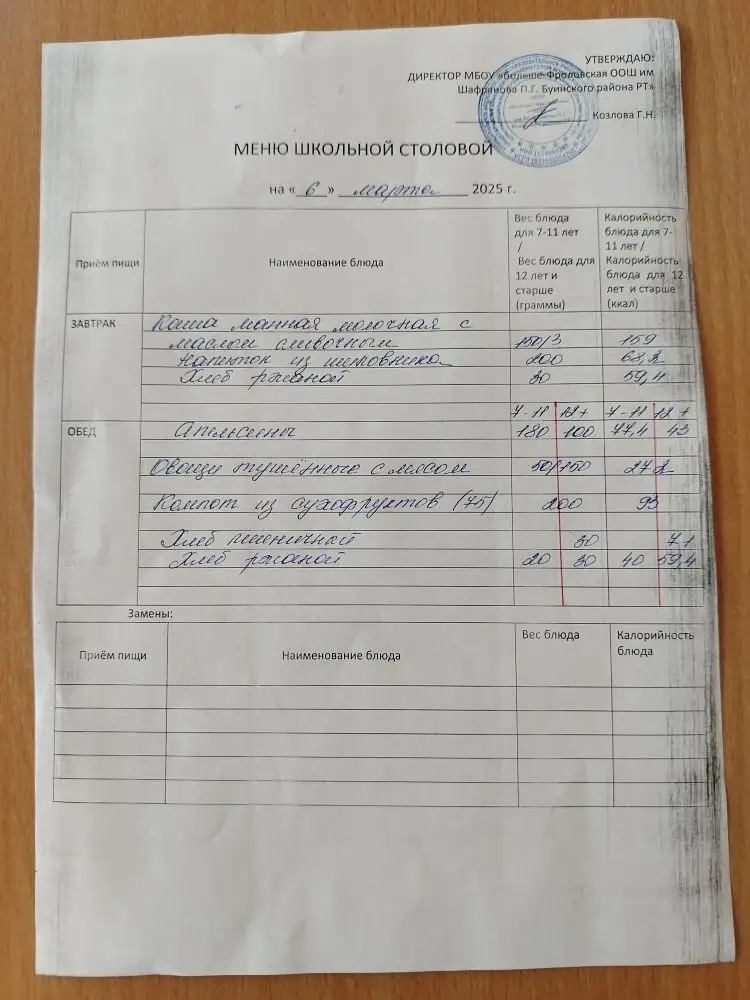 УТВЕРЖДАЮ:
ДИРЕКТОР МБОУ «Больше-Фроловская ООШ им
Шафранова П.Г. Буинского района РТ»
Козлова Г.Н.
МЕНЮ ШКОЛЬНОЙ СТОЛОВОЙ
на « 6 » марта 2025 г.
Приём пищи Наименование блюда Вес блюда для 7-11 лет / Вес блюда для 12 лет и старше (граммы) Калорийность блюда для 7-11 лет / Калорийность блюда для 12 лет и старше (ккал)
ЗАВТРАК Каша манная молочная с
маслом сливочным 150/3 159
Напиток из шиповника 200 68,2
Хлеб ржаной 30 59,4
7-11 12+ 7-11 12+
ОБЕД Апельсины 180 100 77,4 43
Овощи тушённые с мясом 50/150 272
Компот из сухофруктов (75) 200 93
Хлеб пшеничный 30 71
Хлеб ржаной 20 30 40 59,4
Замены:
Приём пищи Наименование блюда Вес блюда Калорийность блюда